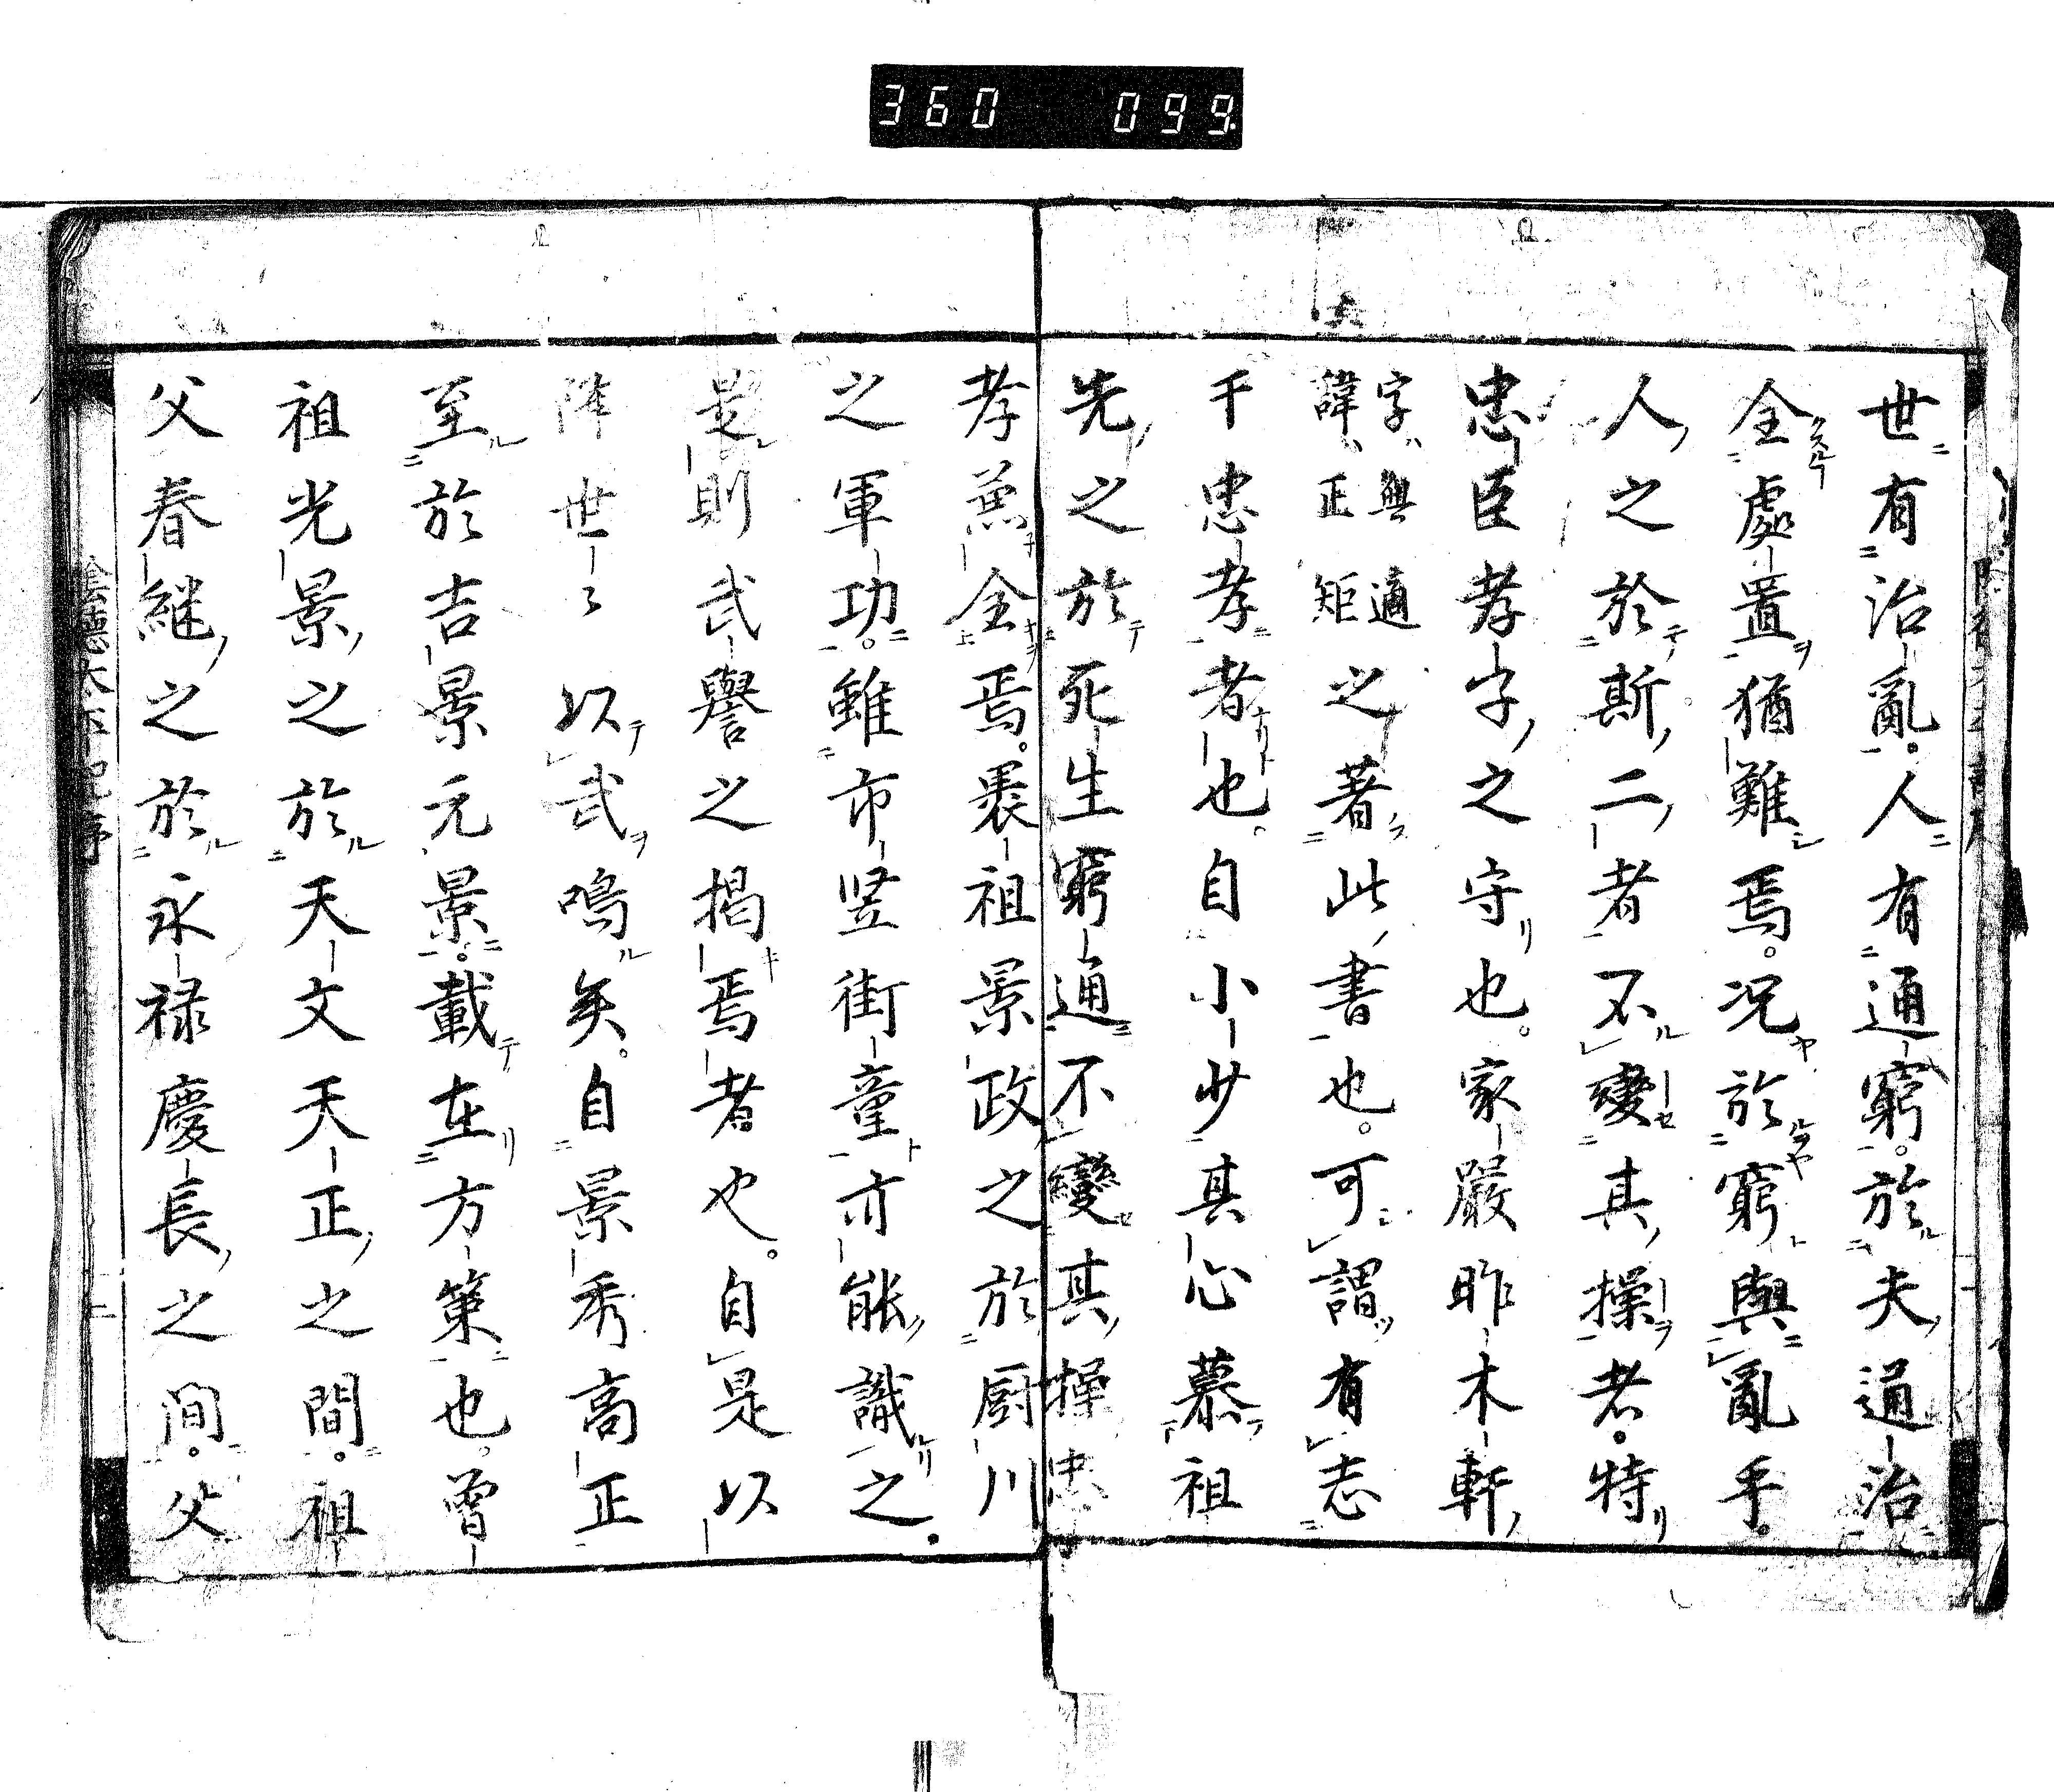 360 099
世有治亂。人有通窮。於夫通治
全處置猶難焉。况於窮與亂乎。
人之於斯二者不變其操者。特
忠臣孝子之守也。家嚴昨木軒
字興適
諱正矩
之著此書也。可謂有志
于忠孝者也。自小少其心慕祖
先之於死生窮通不變其操忠
孝兼全焉。曩祖景政之於厨川
之軍功。雖市竖街童亦能識之。
是則武譽之揭焉者也。自是以
降世々以武鳴矣。自景秀高正
至於吉景元景。載在方策也。曾
祖光景之於天文天正之間。祖
父春継之於永禄慶長之間。父
陰德太平記序
二